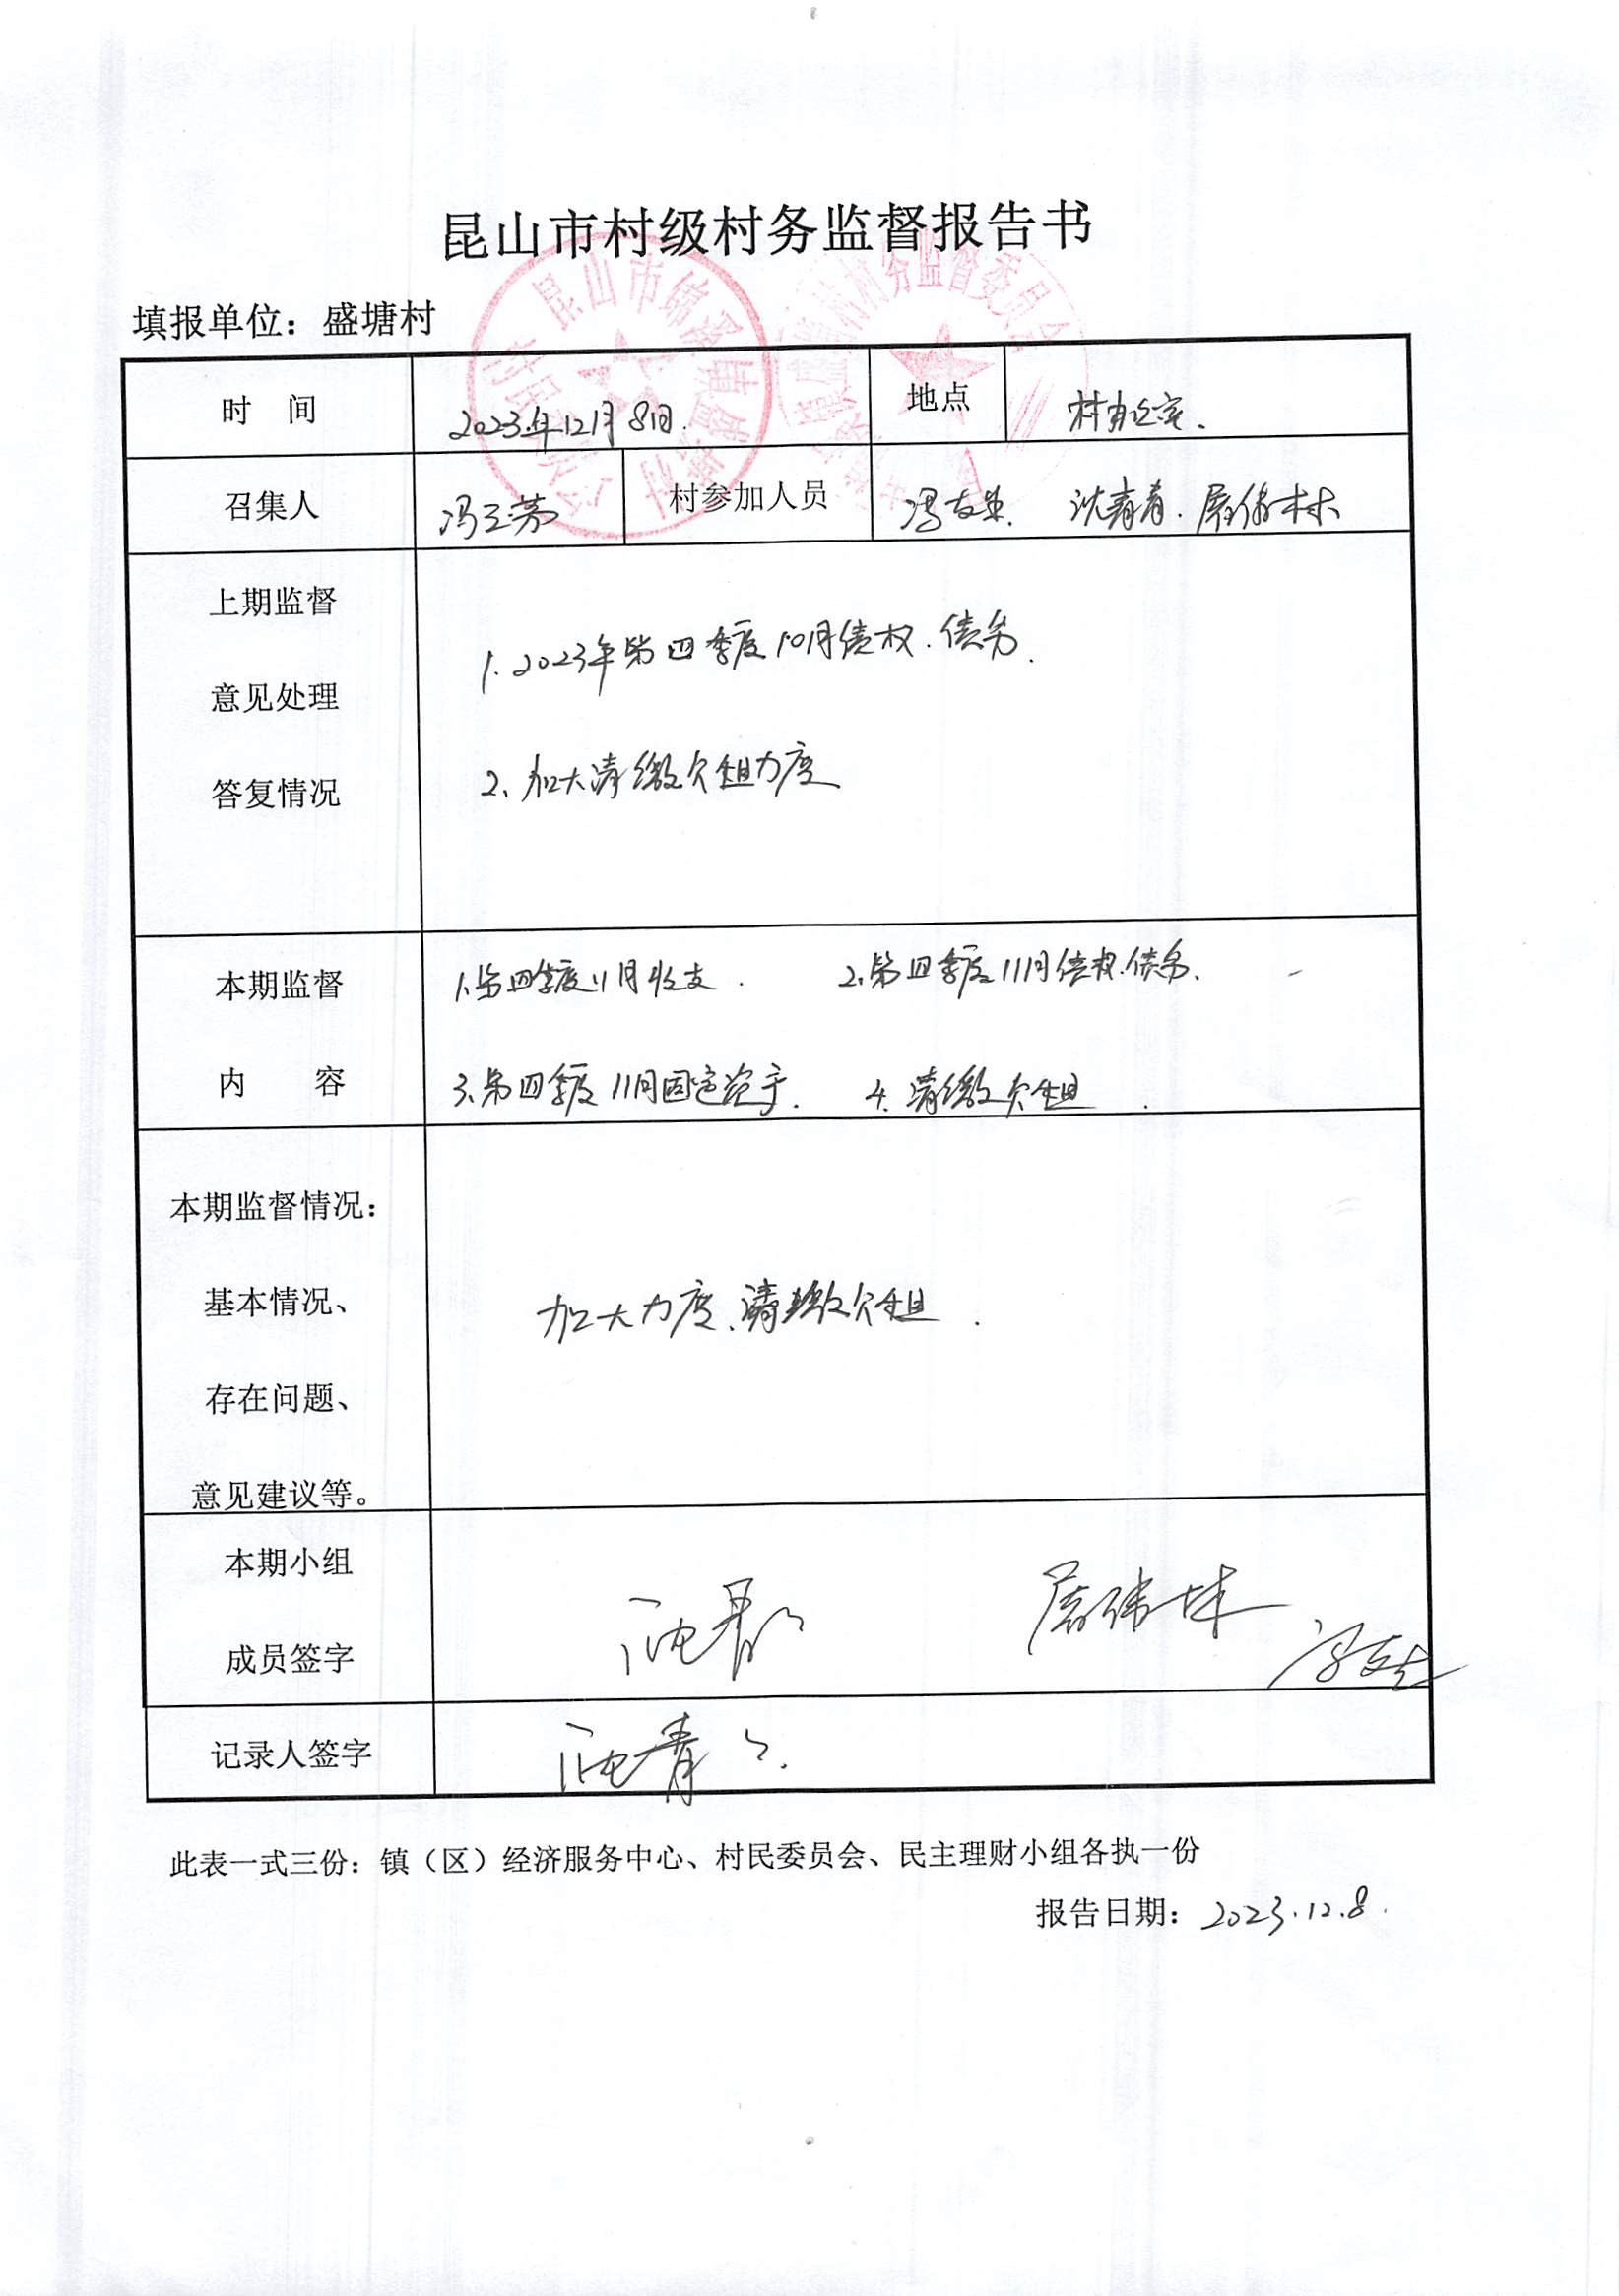 昆山市村级村务监督报告书
填报单位：盛塘村
时 间 2023年12月8日. 地点 村办公室.
召集人 村参加人员 沈青青.
上期监督
意见处理
答复情况
1.2023年第四季度10月债权.债务.
2、加大清缴欠租力度
本期监督
内 容
1.第四季度11月收支. 2.第四季度11月债权.债务.
3.第四季度11月固定资产. 4.清缴欠租.
本期监督情况：
基本情况、
存在问题、
意见建议等。
加大力度、清缴欠租.
本期小组
成员签字
沈青青
记录人签字 沈青青.
此表一式三份：镇（区）经济服务中心、村民委员会、民主理财小组各执一份
报告日期：2023.12.8.